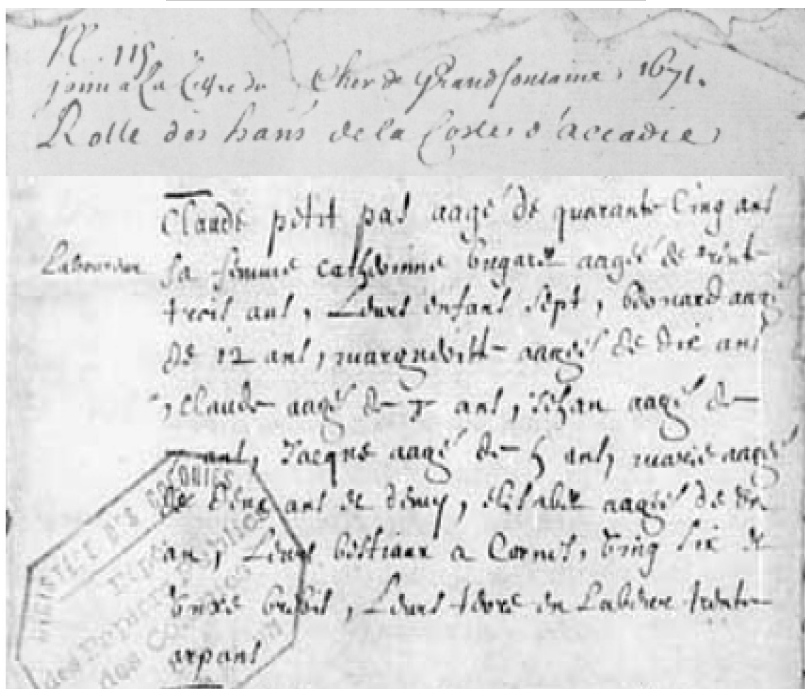 N. 115.
joint a la lettre du Cher de Grandfontaine, 1671.
Rolle des hans de la Coste d'accadie
Claude petit pas aagé de quarante Cinq ans
Laboureur
sa femme catherinne bugaret aagée de trente
trois ans, Leurs enfans sept, bernard aagé
de 12 ans, margueritte aagée de dix ans
, Claude aagé de ans, Jehan aagé de
ans, Jacque aagé de 5 ans, marie aagée
de deux ans et demy, elisabet aagée de un
an, Leurs bestiaux a Cornes, Vingt six et
brebis, Leurs terre en Labeur trente
arpans
MINISTERE DES COLONIES
des Papiers Publics
des Colonies